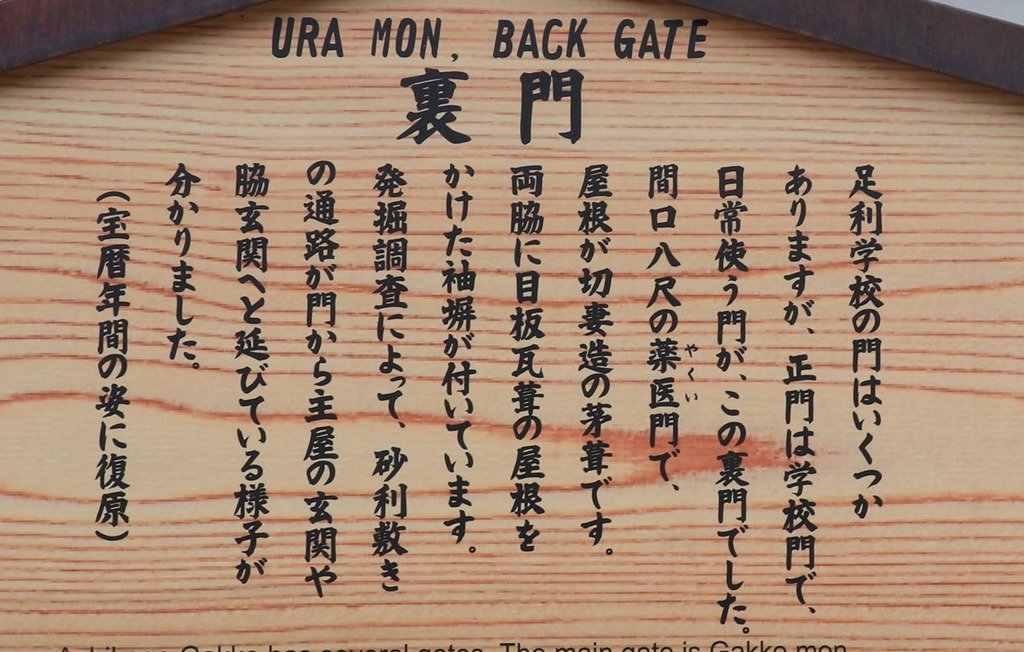 URA MON, BACK GATE
裏門
足利学校の門はいくつか
ありますが、正門は学校門で、
日常使う門が、この裏門でした。
間口八尺の薬医門で、
やくい
屋根が切妻造の茅葺です。
両脇に目板瓦葺の屋根を
かけた袖塀が付いています。
発掘調査によって、砂利敷き
の通路が門から主屋の玄関や
脇玄関へと延びている様子が
分かりました。
（宝暦年間の姿に復原）
Gakko has several gates. The main gate is Gakko mon